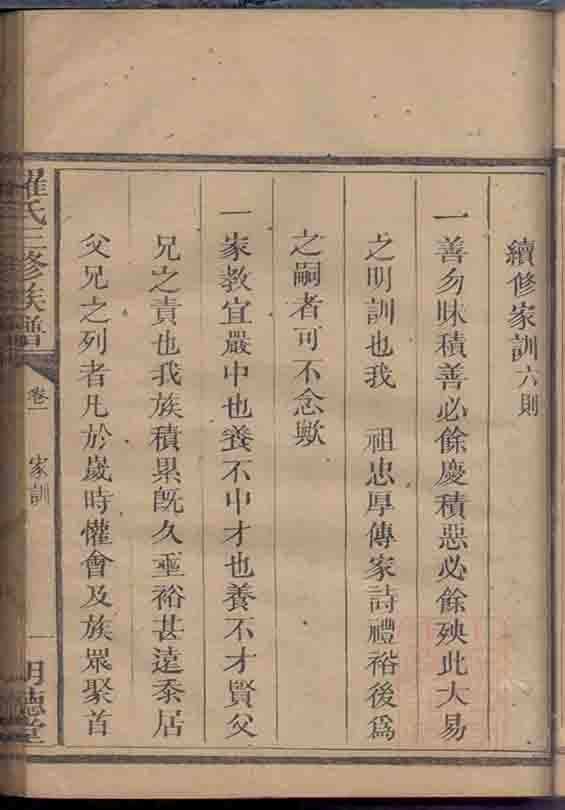 續修家訓六則
一善勿昧積善必餘慶積惡必餘殃此大易
之明訓也我 祖忠厚傳家詩禮裕後為
之嗣者可不念歟
一家教宜嚴中也養不中才也養不才賢父
兄之責也我族積累既久垂裕甚遠忝居
父兄之列者凡於歲時懽會及族眾聚首
羅氏三修族譜
卷一
家訓
一
明德堂